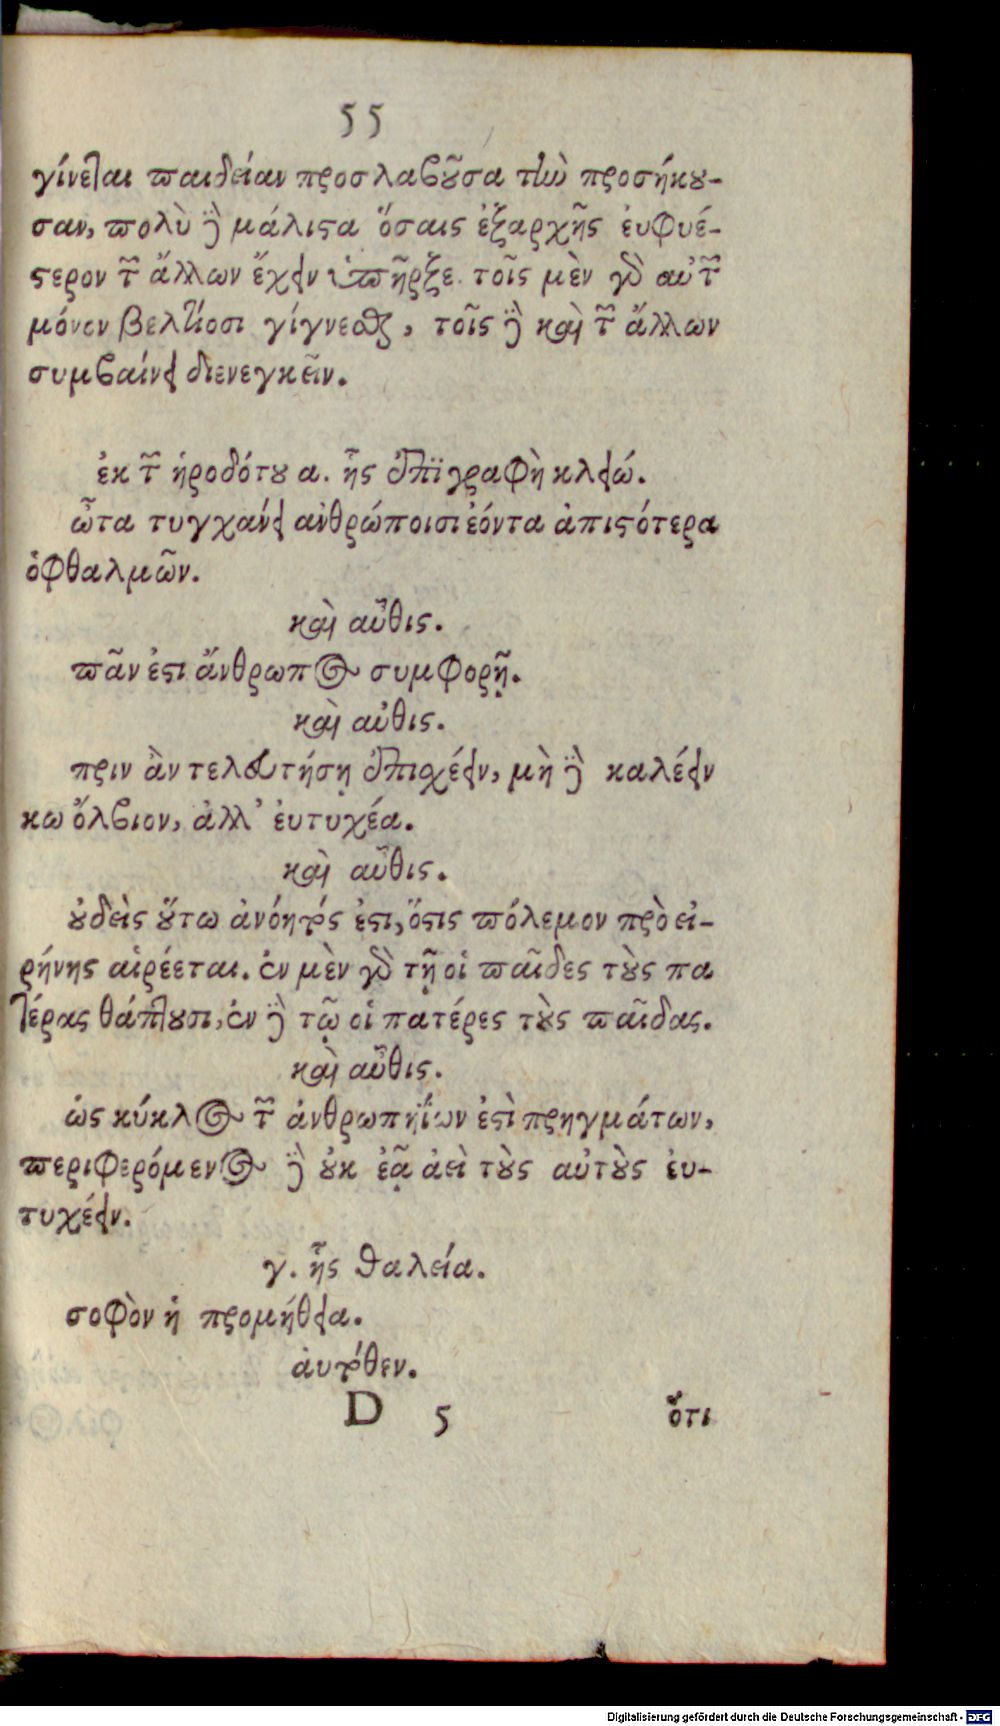 55
γίνεται παιδείαν προσλαβοῦσα τὴν προσήκου-
σαν, πολὺ δὲ μάλιστα ὅσαις ἐξαρχῆς ἐυφυέ-
στερον τῶν ἄλλων ἔχειν ὑπῆρξε. τοῖς μὲν γὰρ αὐτῶν
μόνον βελτίοσι γίγνεσθαι, τοῖς δὲ καὶ τῶν ἄλλων
συμβαίνει διενεγκεῖν.
ἐκ τῶν ἡροδότου α. ἧς ἐπιγραφὴ κλειώ.
ὦτα τυγχάνει ἀνθρώποισι ἐόντα ἀπιστότερα
ὀφθαλμῶν.
καὶ αὖθις.
πᾶν ἐστι ἄνθρωπος συμφορῇ.
καὶ αὖθις.
πριν ἂν τελευτήσῃ ἐπισχέειν, μὴ δὲ καλέειν
κω ὄλβιον, ἀλλ' ἐυτυχέα.
καὶ αὖθις.
οὐδεὶς οὕτω ἀνόητός ἐστι, ὅστις πόλεμον πρὸ εἰ-
ρήνης αἱρέεται. ἐν μὲν γὰρ τῇ οἱ παῖδες τοὺς πα
τέρας θάπτουσι, ἐν δὲ τῷ οἱ πατέρες τοὺς παῖδας.
καὶ αὖθις.
ὡς κύκλος τῶν ἀνθρωπηΐων ἐστὶ πρηγμάτων,
περιφερόμενος δὲ οὐκ ἐᾷ ἀεὶ τοὺς αὐτοὺς ἐυ-
τυχέειν.
γ. ἧς θαλεία.
σοφὸν ἡ προμήθεια.
ἀυτόθεν.
D 5 ὅτι
Digitalisierung gefördert durch die Deutsche Forschungsgemeinschaft - DFG